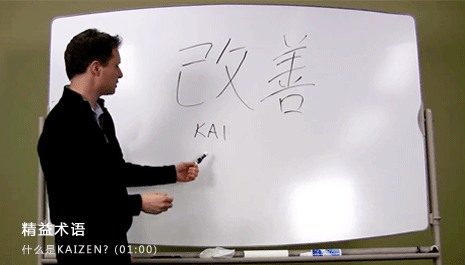 改善
KAI
精益术语
什么是KAIZEN? (01:00)